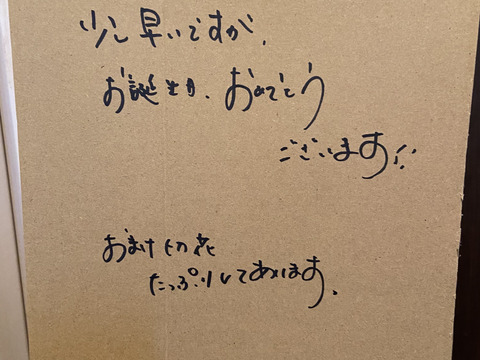 少し早いですが、
お誕生日、おめでとう
ございます!!
おまけ切花
たっぷりしてあります。